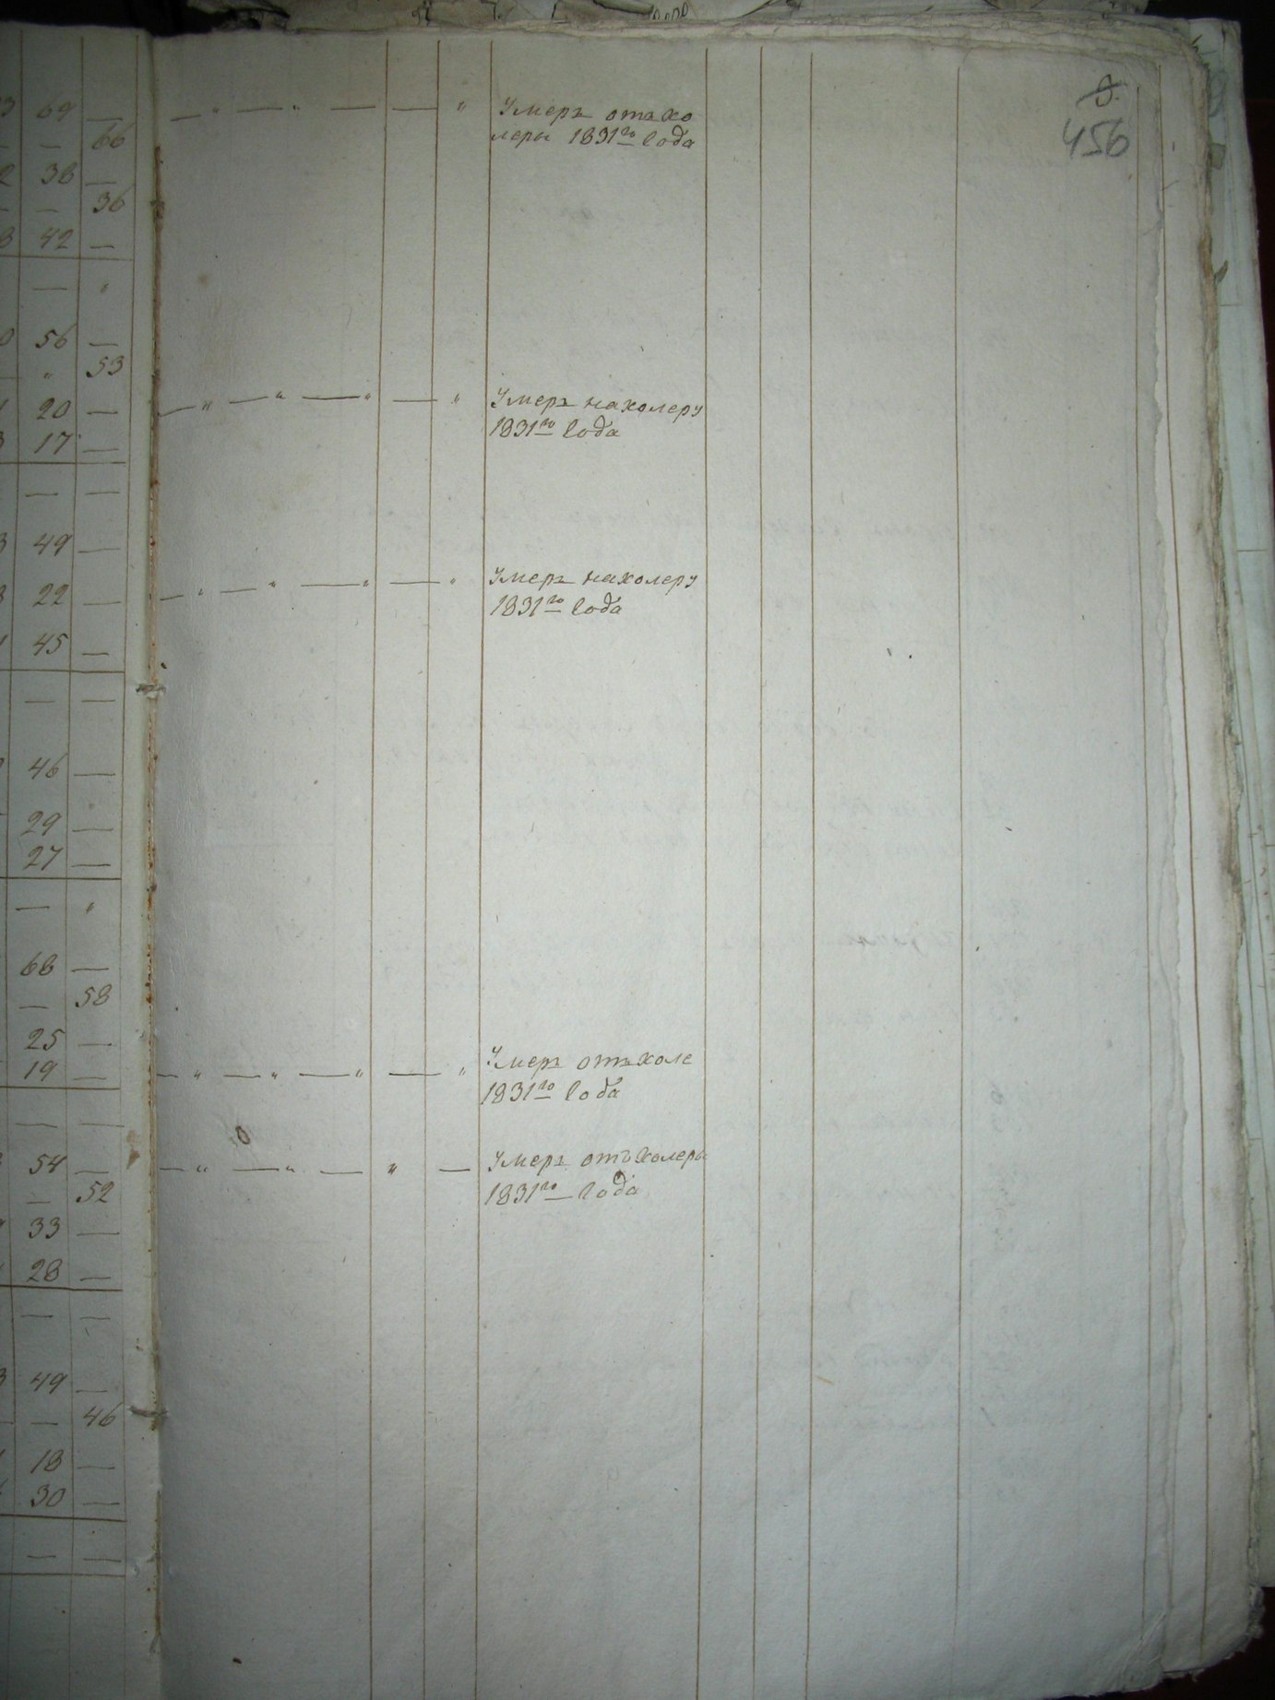 9.
456
69 —
— 66
38 —
— 36
42 —
— "
56 —
" 53
20 —
17 —
— —
49 —
22 —
45 —
— —
46 —
29 —
27 —
— "
68 —
— 58
25 —
19 —
— —
54 —
— 52
33 —
28 —
— —
49 —
— 46
18 —
30 —
— —
— " — " — — "
Умеръ отъ хо
леры 1831го года
— " — " — " — "
Умеръ на холеру
1831го года
— " — " — " — "
Умеръ на холеру
1831го года
— " — " — " — "
Умеръ отъ холе
1831го года
— " — " — " —
Умеръ отъ холеры
1831го года